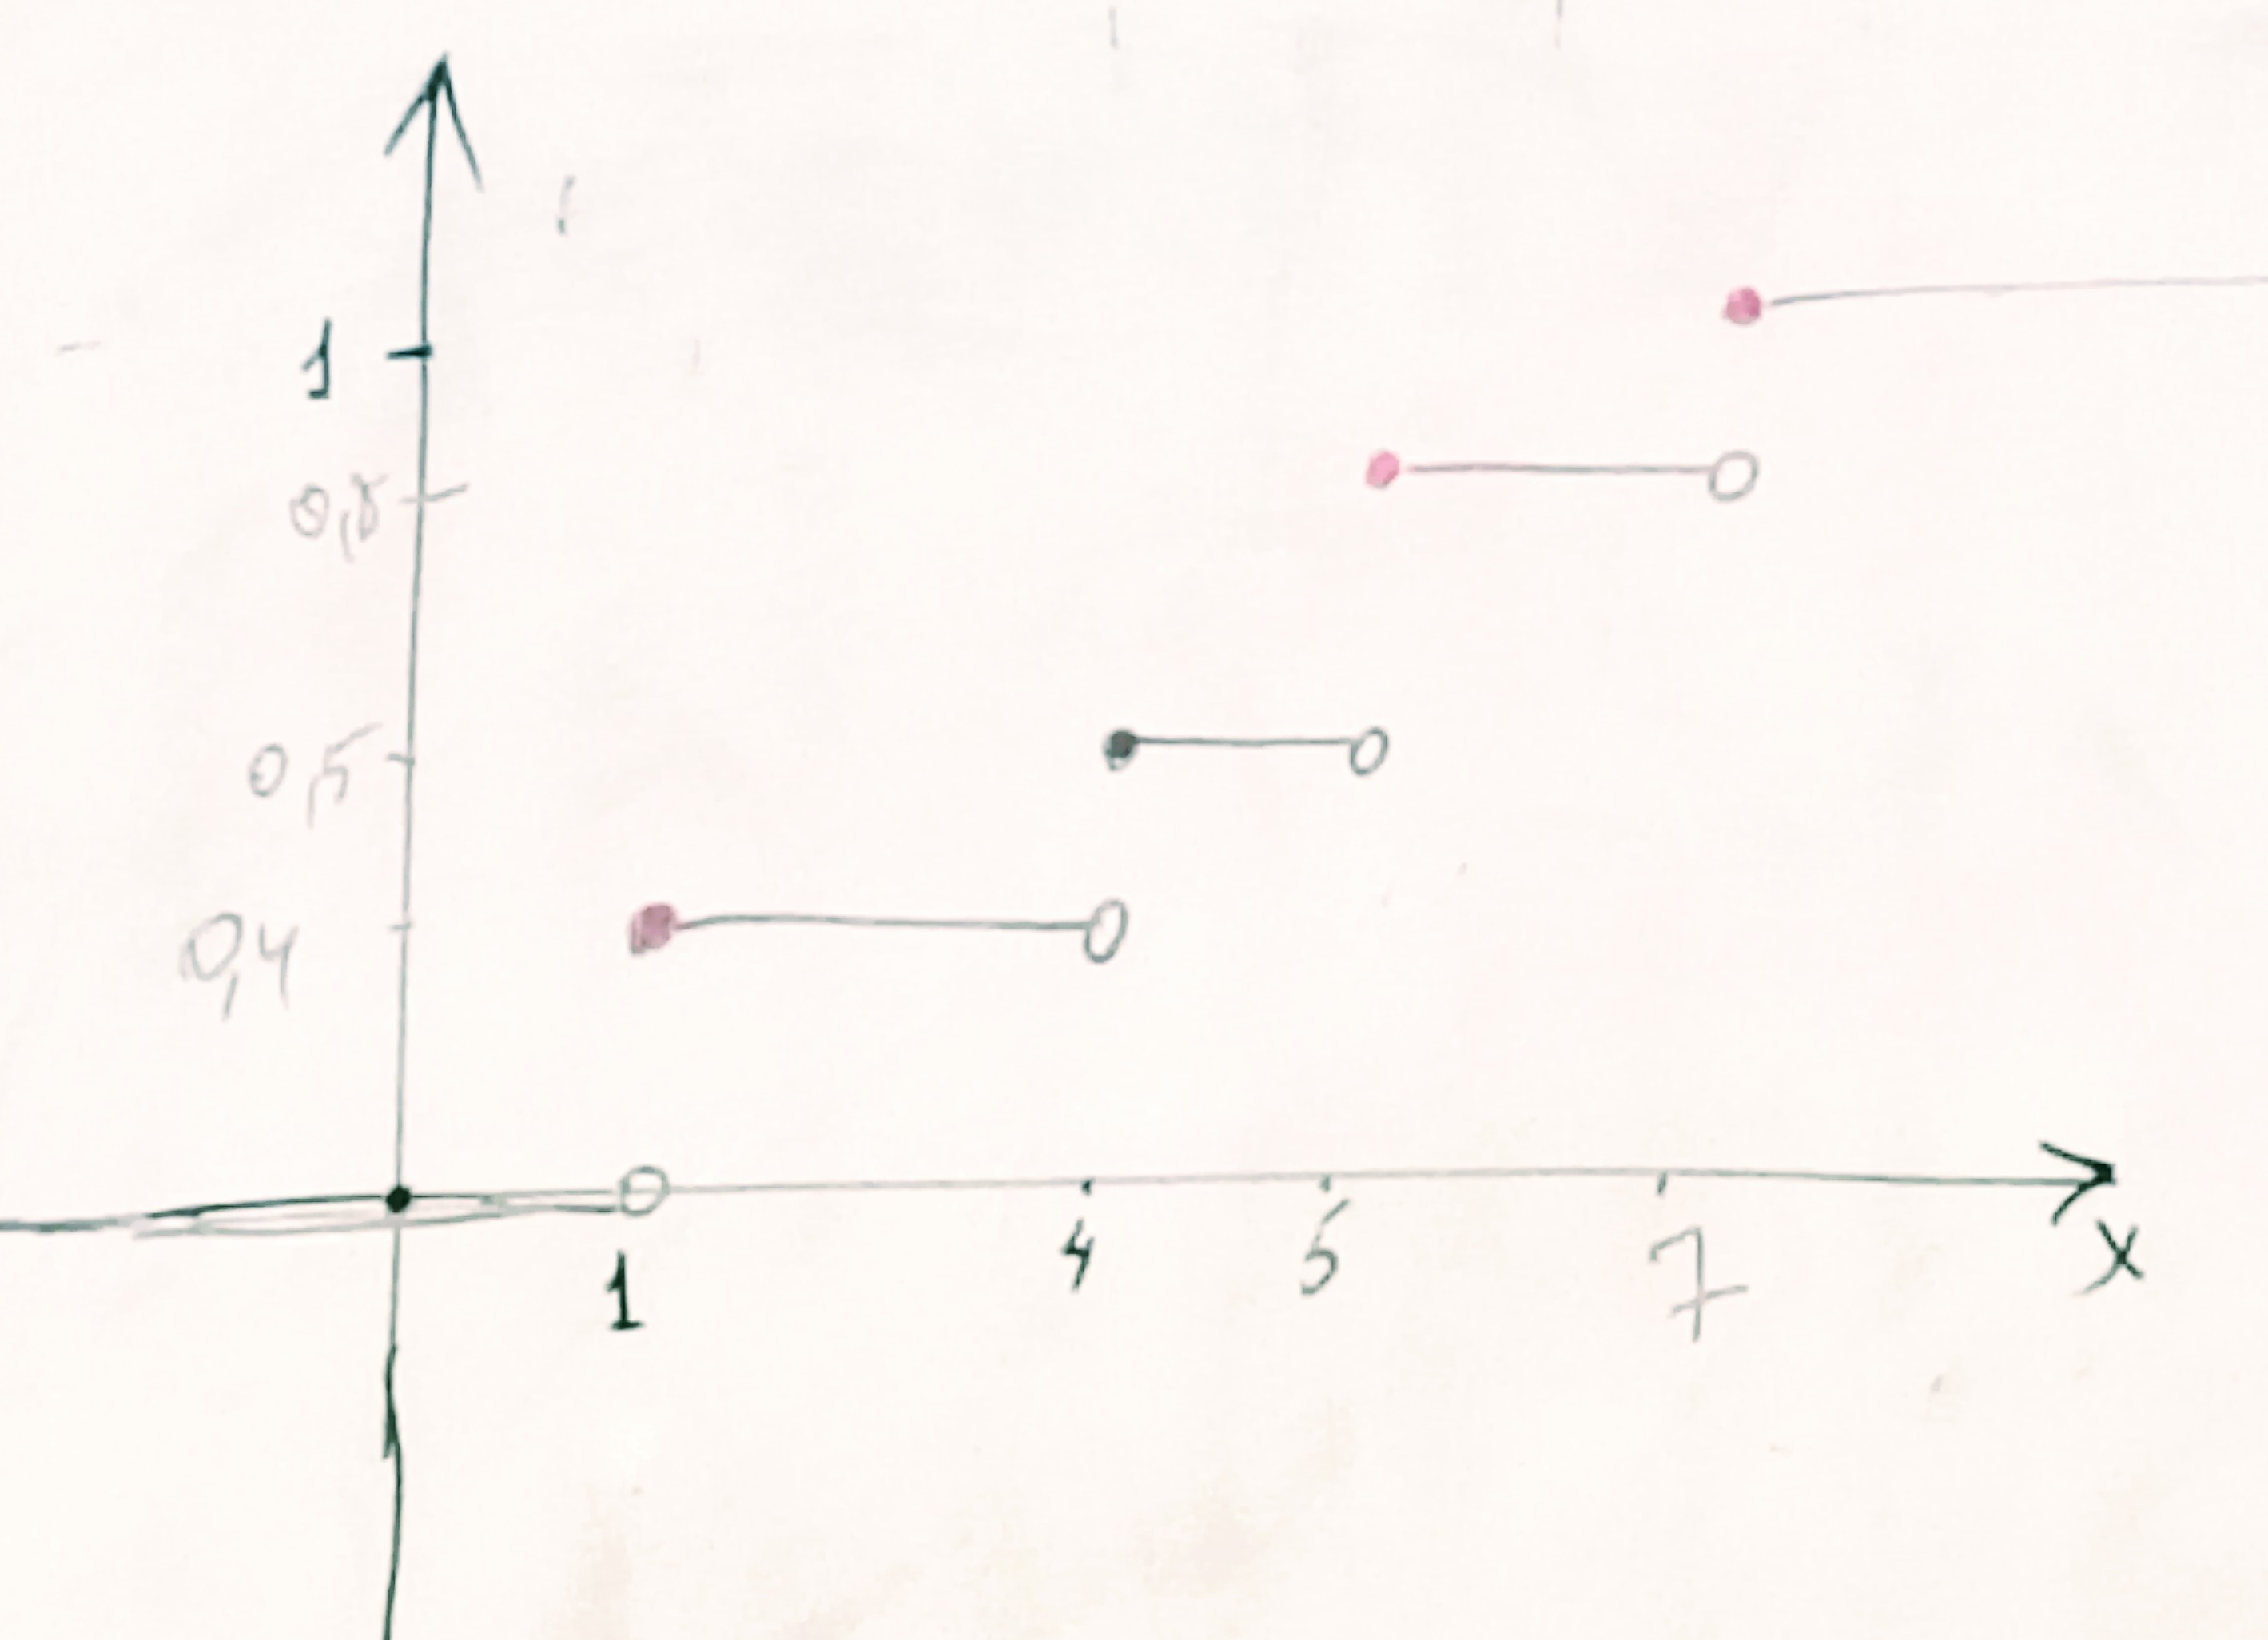 1
0,8
0,5
0,4
1 4 5 7 x